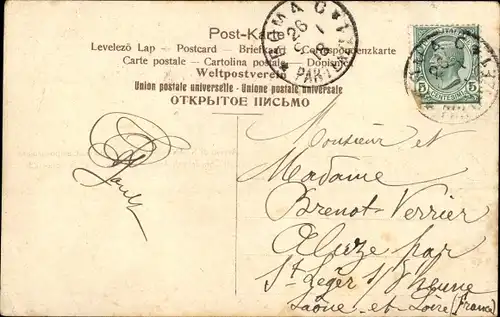 Post-Karte
Levelezö Lap — Postcard — Briefkaart — Correspondenzkarte
Carte postale — Cartolina postale — Dopisnice
Weltpostverein
Union postale universelle - Unione postale universale
ОТКРЫТОЕ ПИСЬМО
ROMA
26 1
PARTENZA
5 5
Monsieur et
Madame
Brenot-Verrier
Aluze par
St Léger s/ Dheune
Saône-et-Loire (France)